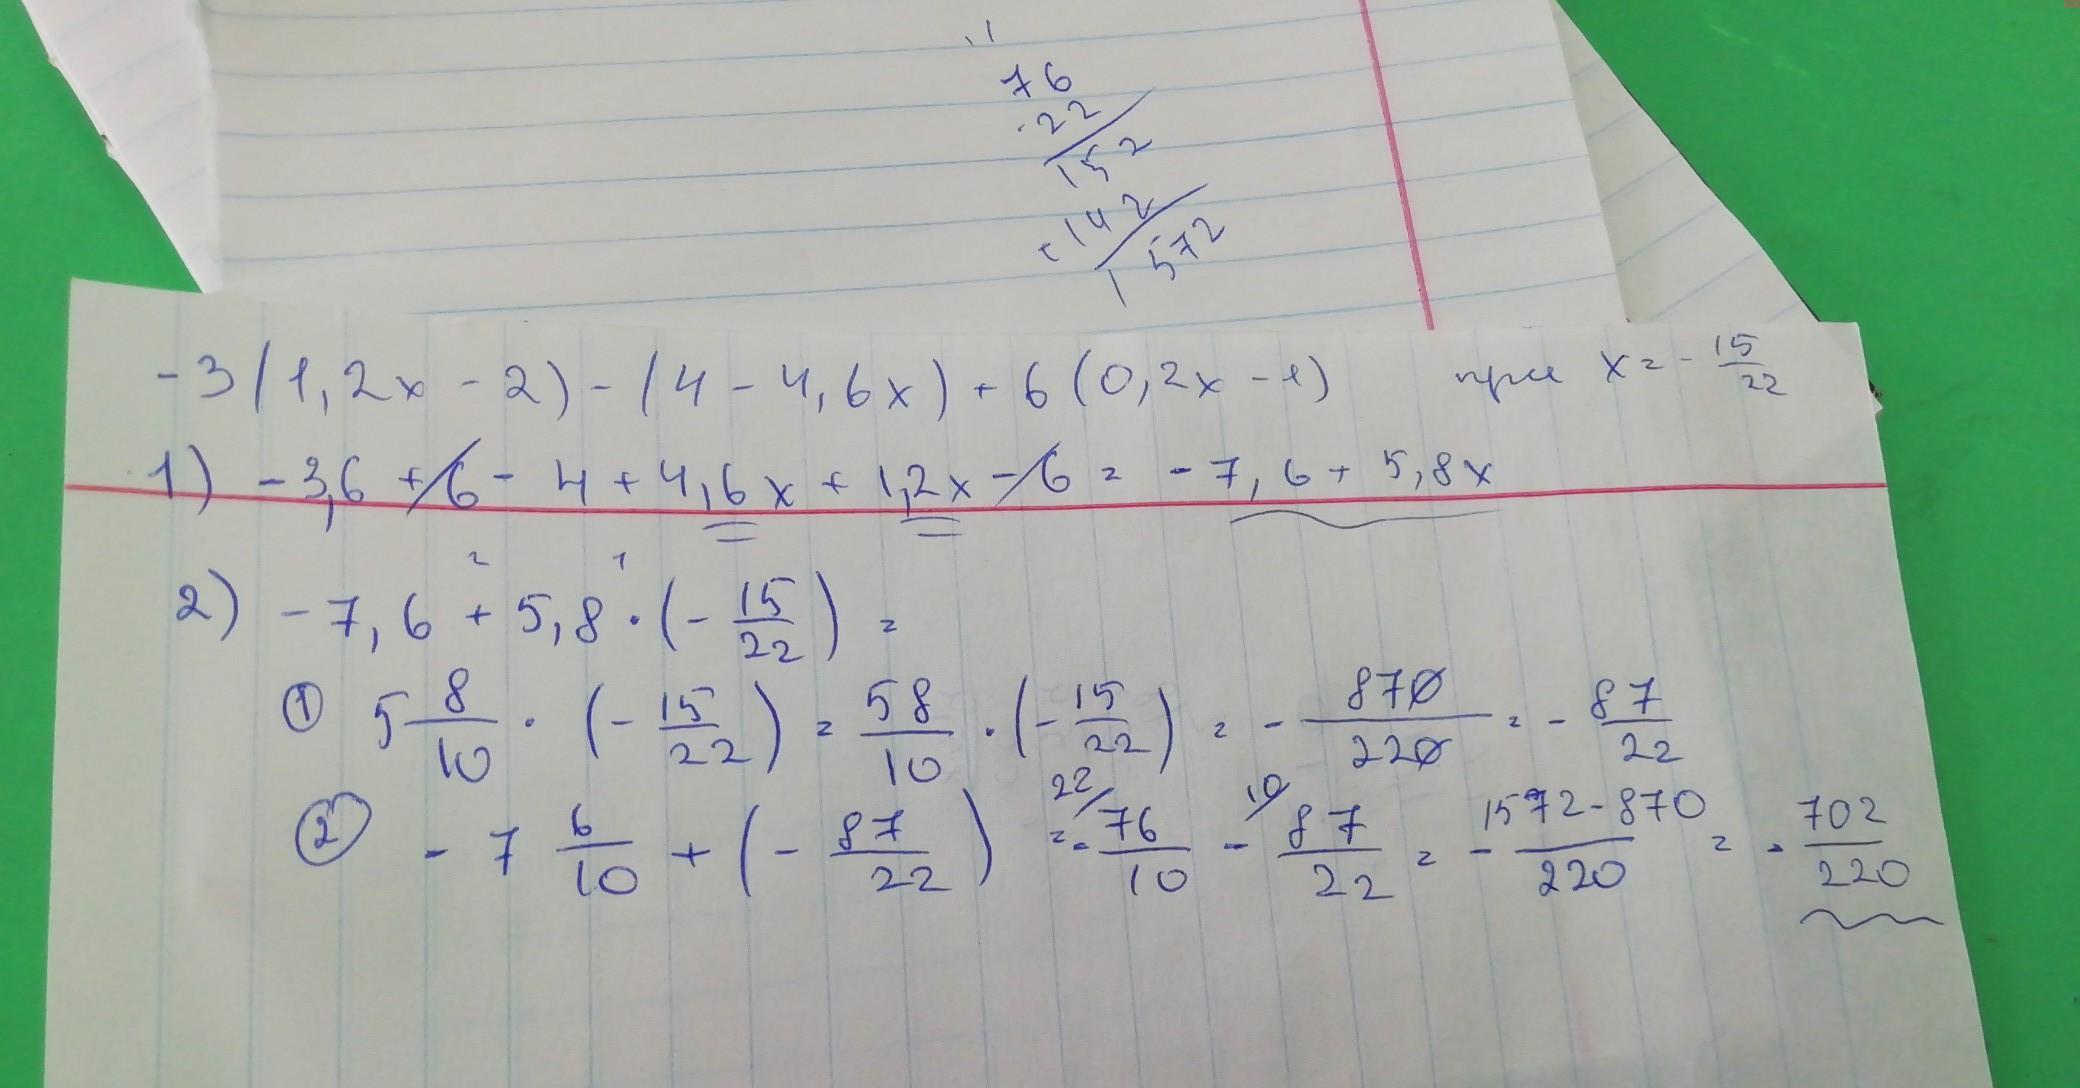 76
·22
152
+142
1572
-3(1,2x - 2) - (4 - 4,6x) + 6(0,2x - 1) при x = - 15/22
1) - 3,6 + 6 - 4 + 4,6x + 1,2x - 6 = - 7,6 + 5,8x
2) - 7,6 + 5,8 · (- 15/22) =
① 5 8/10 · (- 15/22) = 58/10 · (- 15/22) = - 870/220 = - 87/22
② - 7 6/10 + (- 87/22) = - 76/10 - 87/22 = - 1572-870/220 = - 702/220